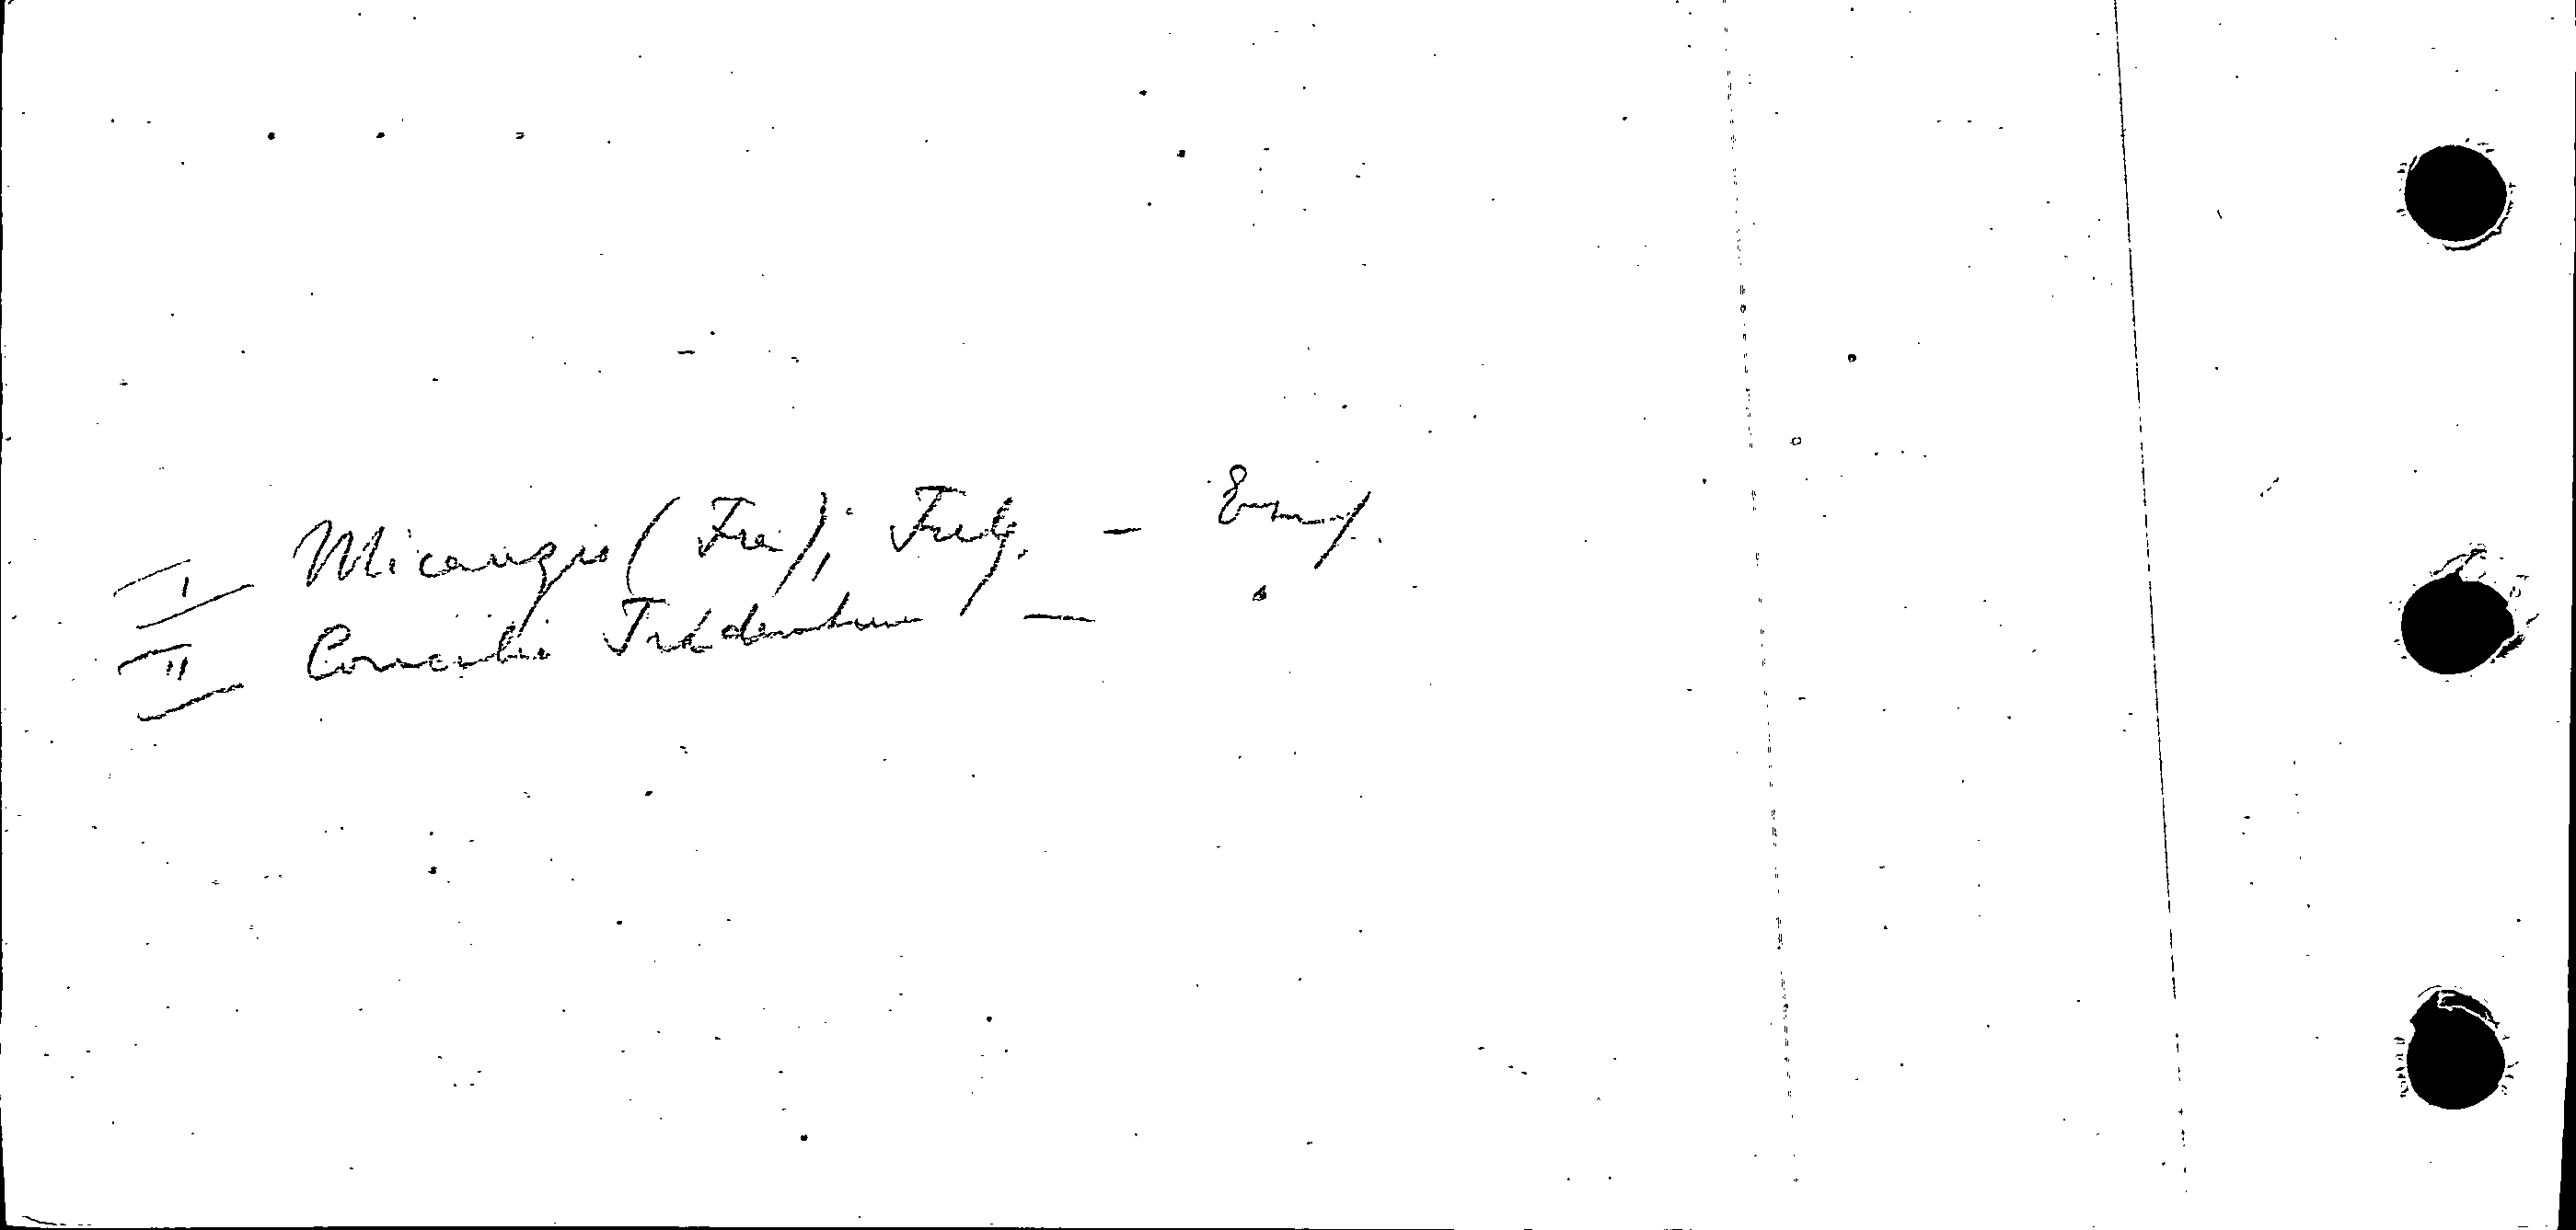 I Micanzio (Fra), Fulg. —
II Concilio Tridentino —